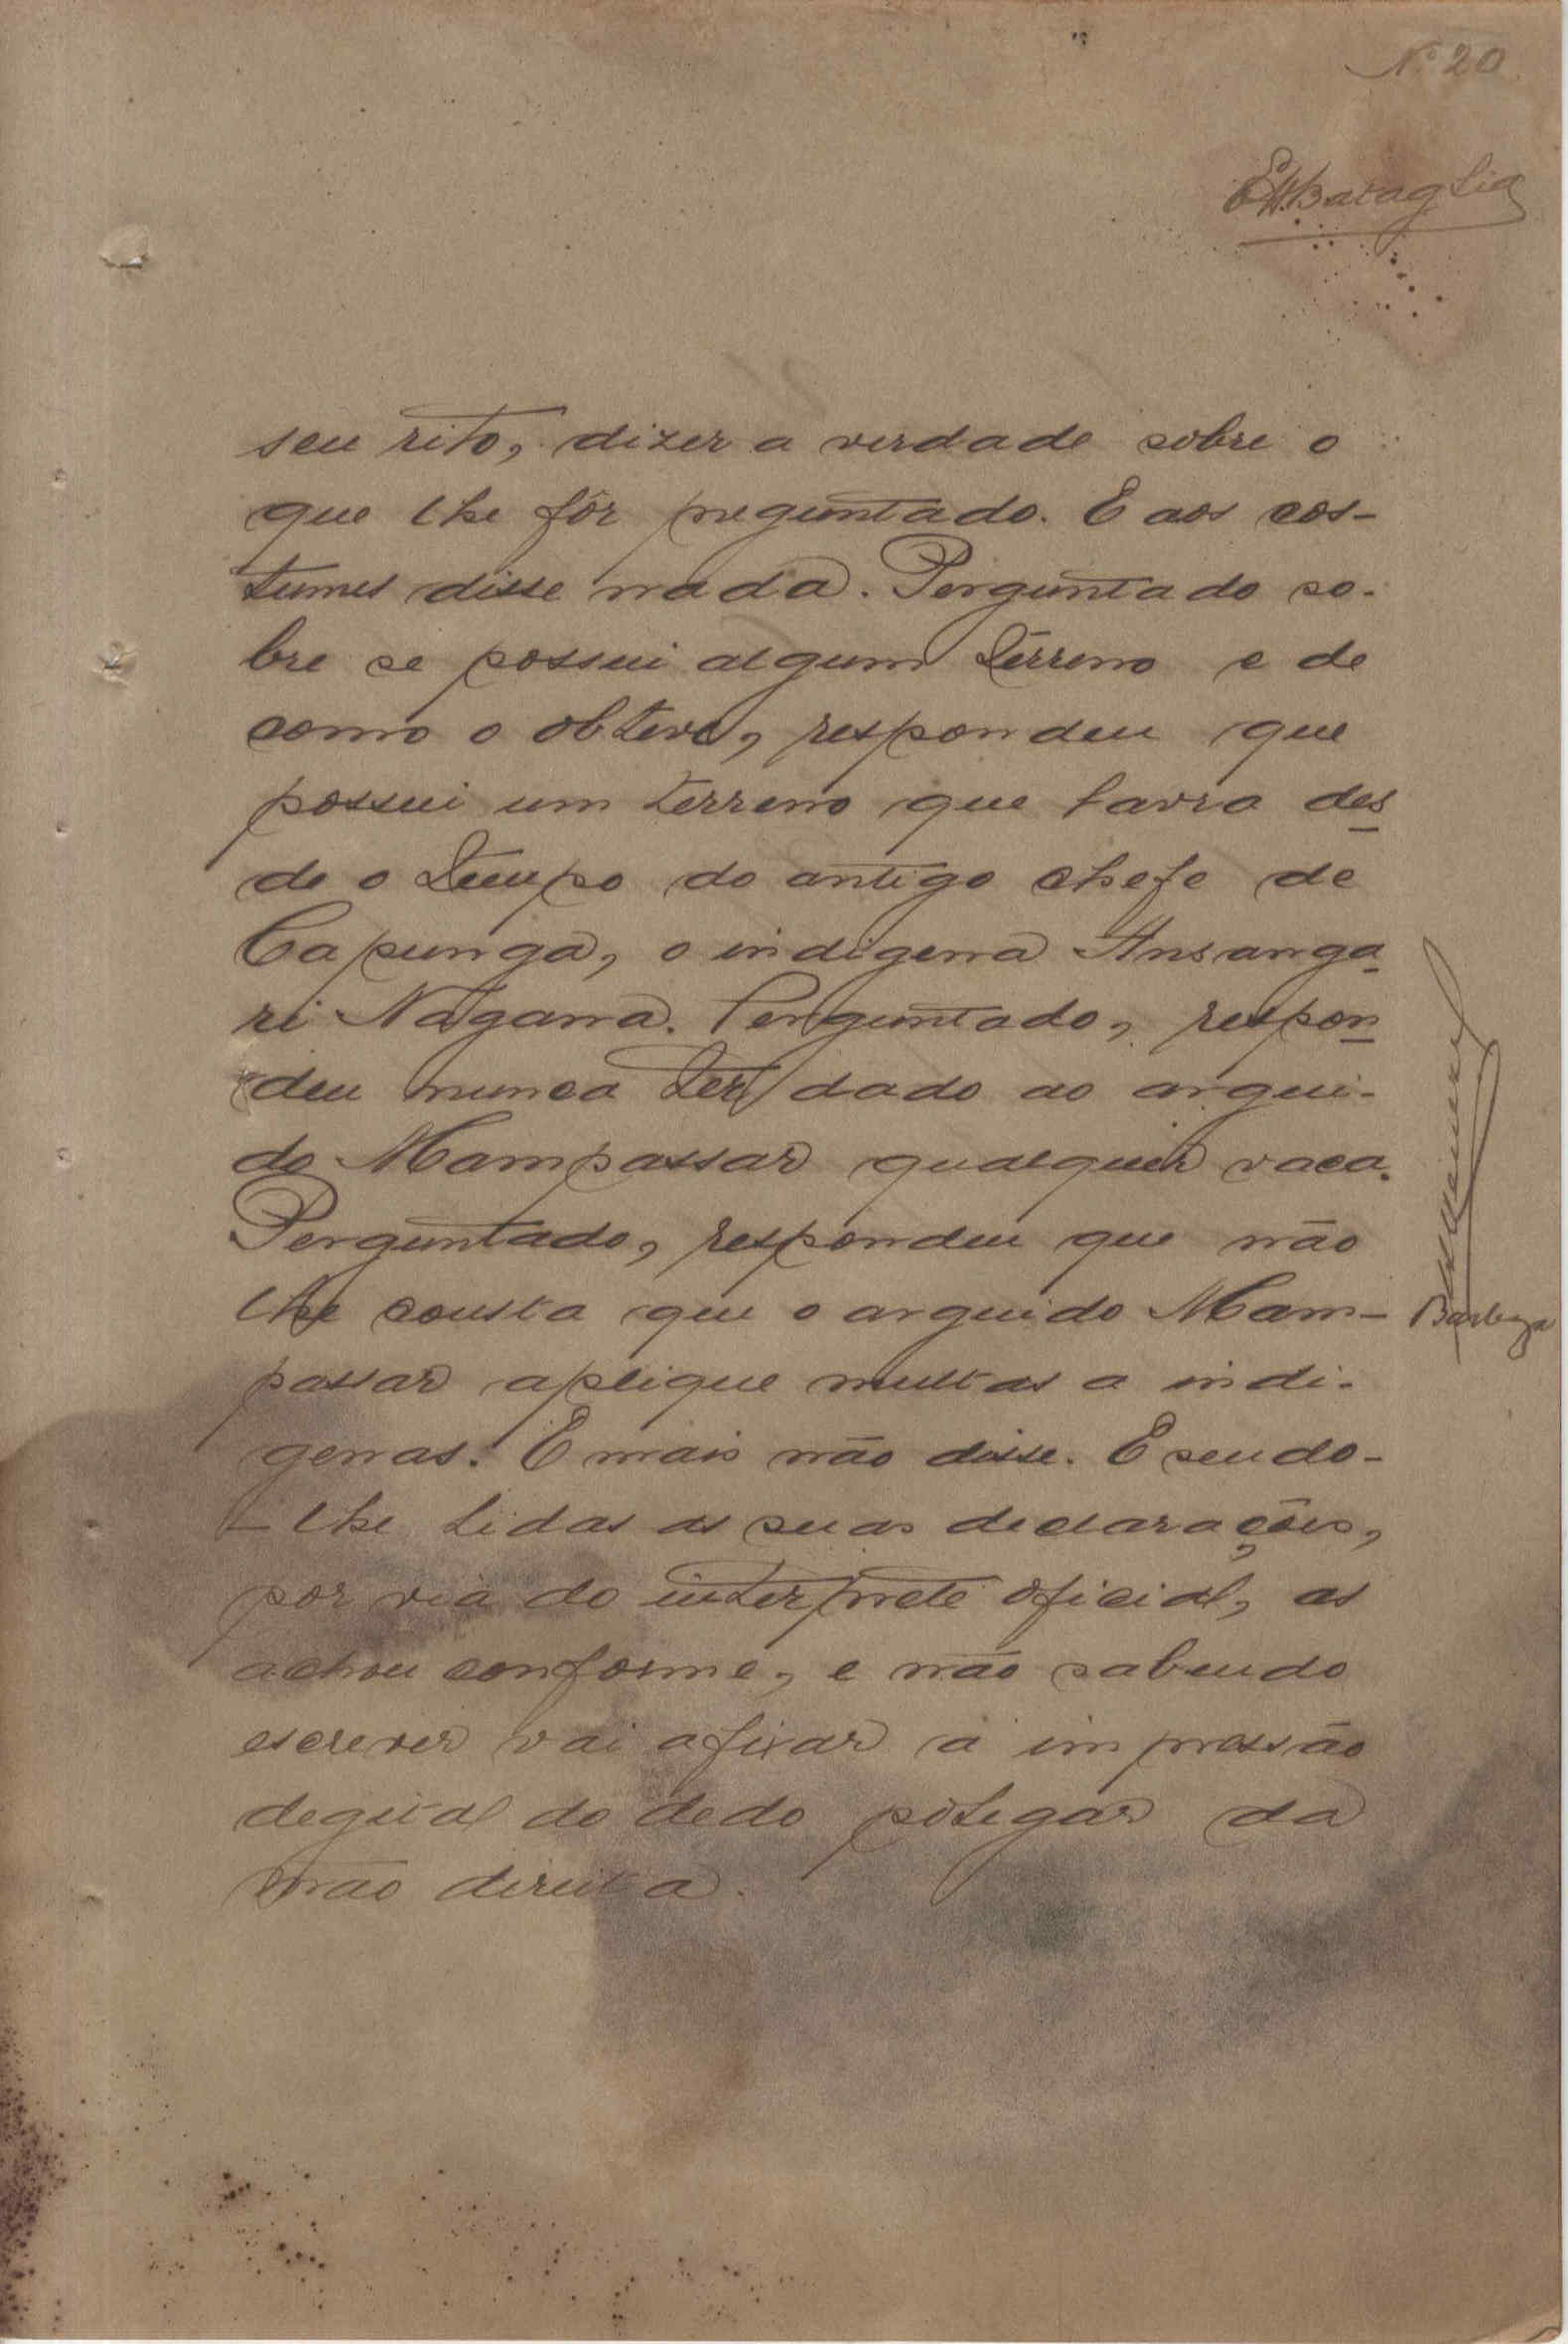 Nº 20
seu rito, dizer a verdade sobre o
que lhe fôr preguntado. E aos cos-
tumes disse nada. Perguntado so-
bre se possui algum terreno e de
como o obteve, respondeu que
possui um terreno que lavra des
de o tempo do antigo chefe de
Capunga, o indigena Ansanga-
ri Nagana. Perguntado, respon
deu nunca ter dado ao argui-
do Mampassar qualquer vaca.
Perguntado, respondeu que não
lhe consta que o arguido Mam-
passar aplique multas a indi-
genas. E mais não disse. E sendo-
-lhe lidas as suas declarações,
por via do interprete oficial, as
achou conforme, e não sabendo
escrever vai afixar a impressão
degital do dedo polegar da
mão direita.